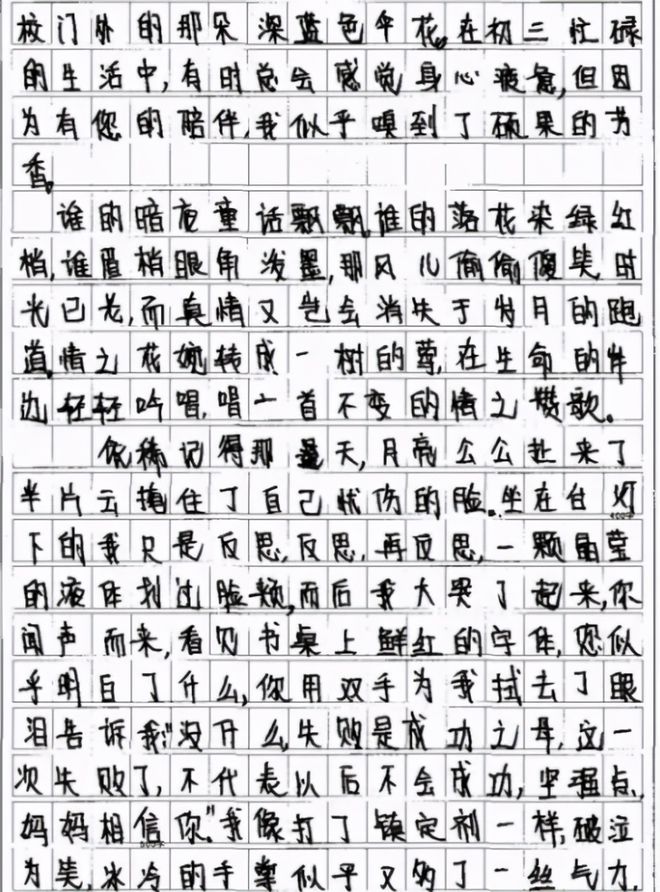 校门外的那朵深蓝色伞花。在初三忙碌
的生活中,有时总会感觉身心疲惫,但因
为有您的陪伴,我似乎嗅到了硕果的芳
香。
谁的暗夜童话飘飘,谁的落花染绿红
梢,谁眉梢眼角泼墨,那风儿偷偷傻笑,时
光已老,而真情又岂会消失于岁月的跑
道,情之花婉转成一树的莺,在生命的岸
边轻轻吟唱,唱一首不变的情之赞歌。
依稀记得那是天,月亮公公赴来了
半片云掩住了自己忧伤的脸。坐在台灯
下的我只是反思,反思,再反思,一颗晶莹
的液体划过脸颊,而后我大哭了起来,你
闻声而来,看见书桌上鲜红的字体,您似
乎明白了什么,你用双手为我拭去了眼
泪告诉我:"没什么,失败是成功之母,这一
次失败了,不代表以后不会成功,坚强点,
妈妈相信你。"我像打了镇定剂一样,破泣
为笑,冰冷的手掌似乎又多了一丝气力,